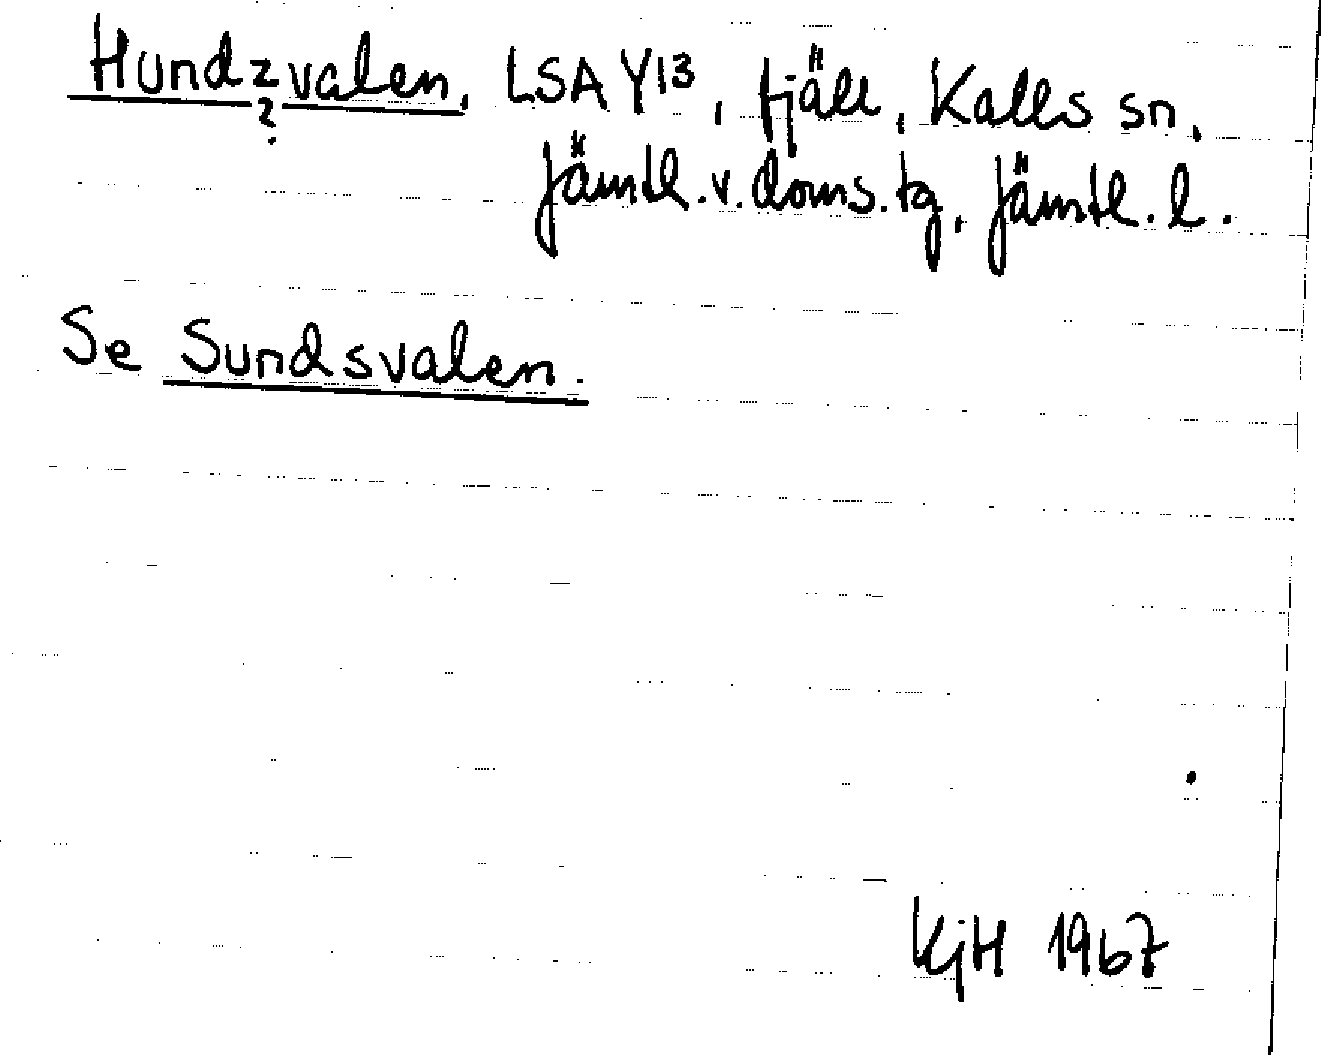 Hundzvalen, LSA Y13, fjäll, Kalls sn,
?
Jämtl.v.doms.tg, Jämtl.l.
Se Sundsvalen.
KjH 1967